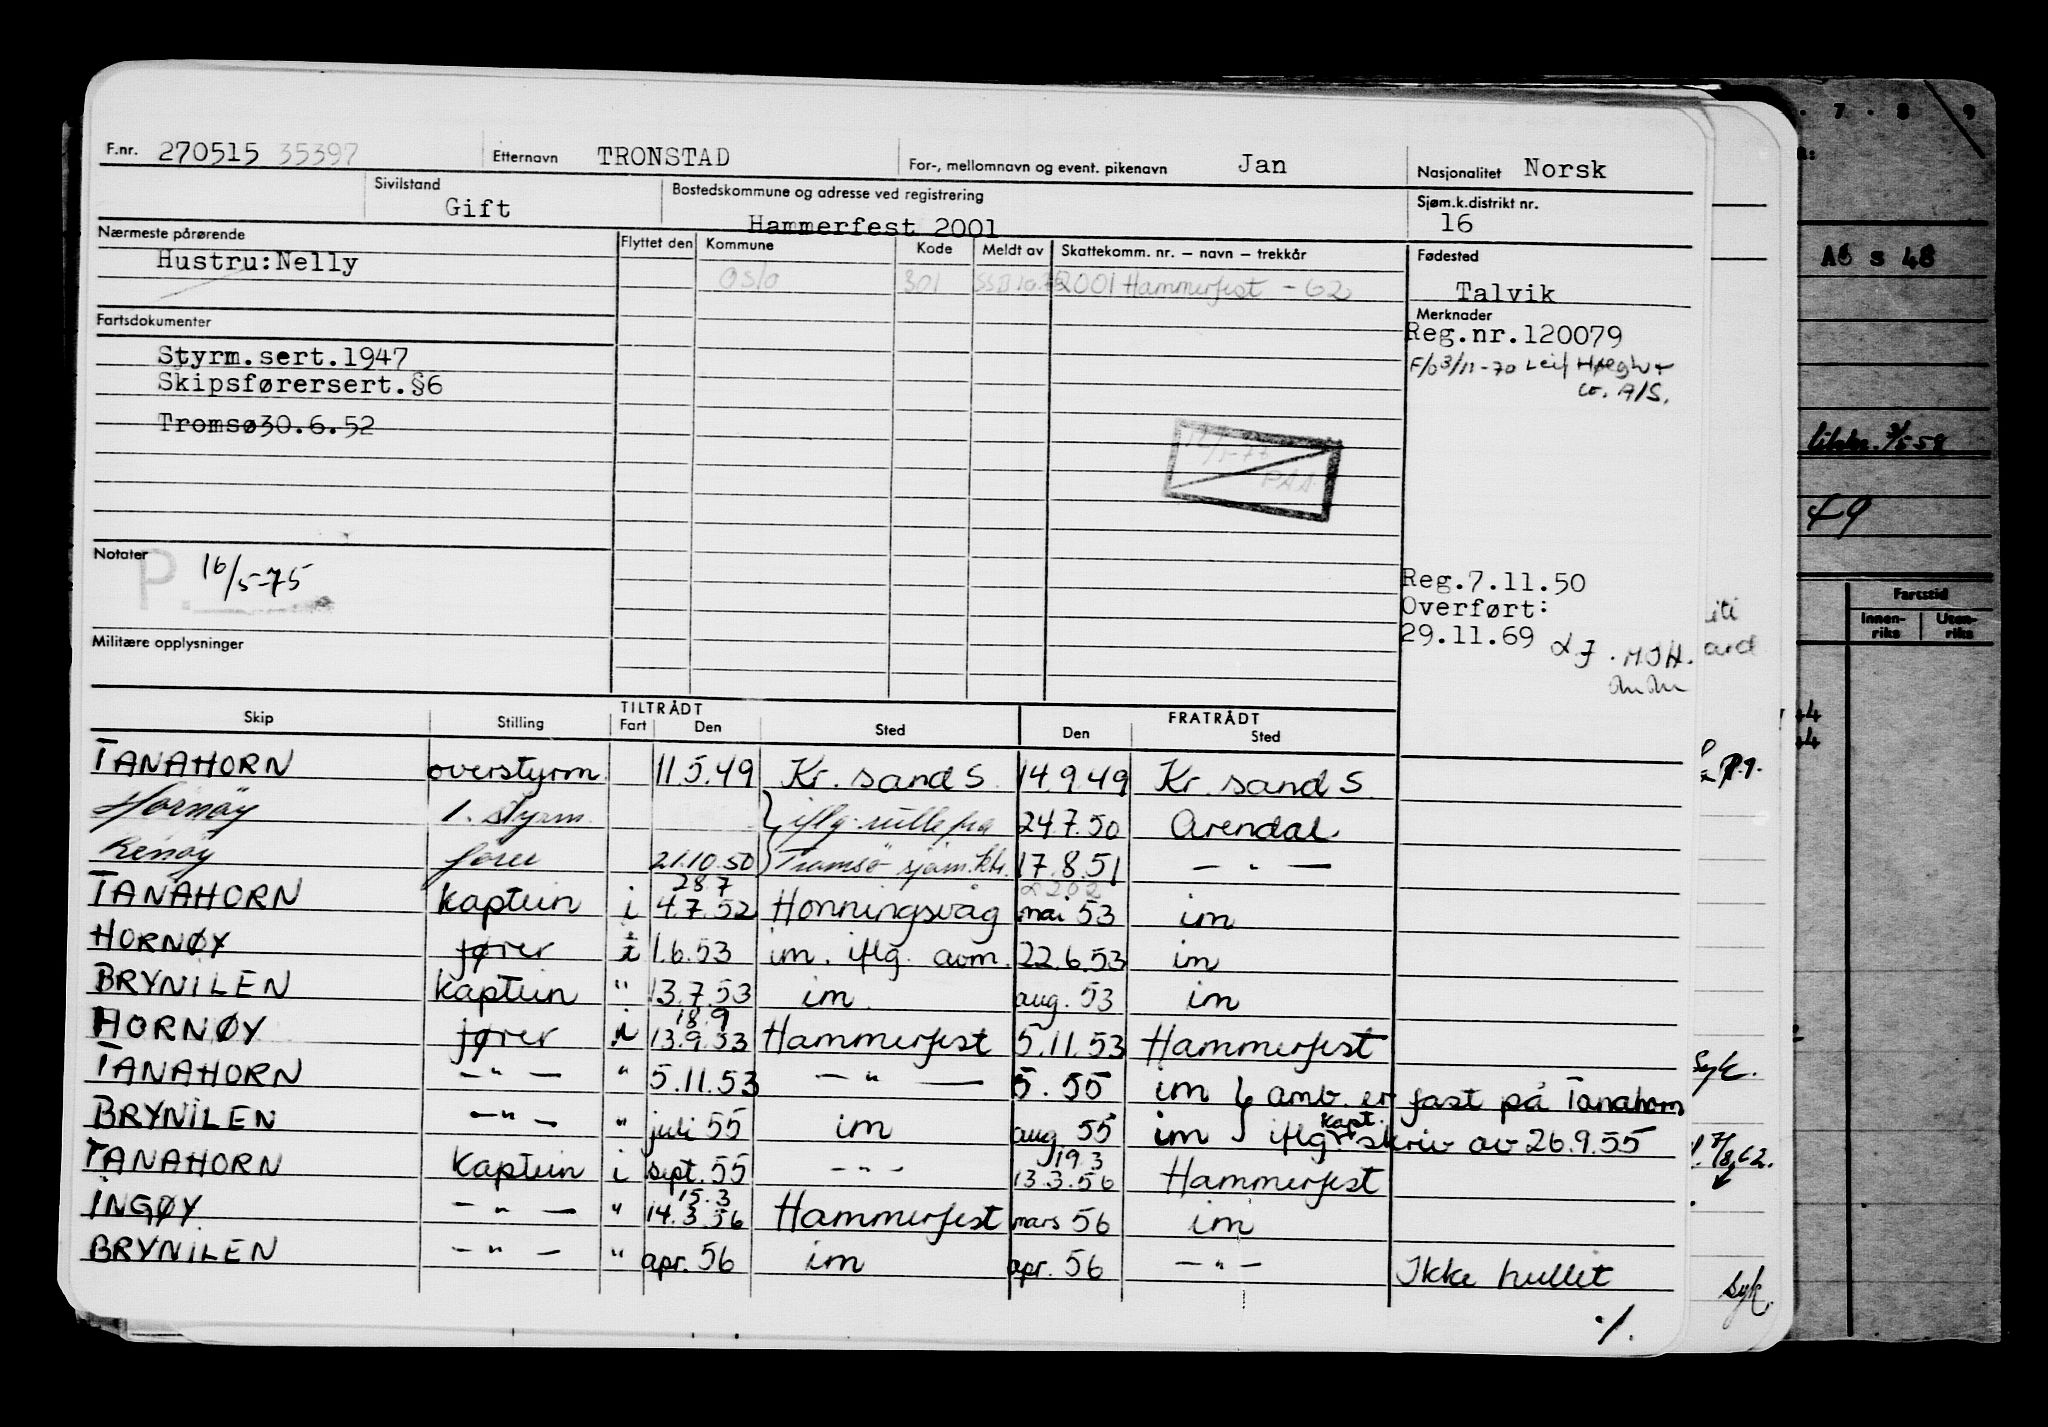 F.nr. 270515 35397 Etternavn TRONSTAD For-, mellomnavn og event. pikenavn Jan Nasjonalitet Norsk
Sivilstand Gift Bostedskommune og adresse ved registrering Hammerfest 2001 Sjøm.k.distrikt nr. 16
Nærmeste pårørende Flyttet den Kommune Kode Meldt av Skattekomm. nr. – navn – trekkår Fødested
Hustru:Nelly Oslo 301 2001 Hammerfest - 62 Talvik
Fartsdokumenter Merknader
Reg.nr.120079
Styrm.sert.1947 F/o 3/11-70 Leif Høegh +
Skipsførersert.§6 co. A/S.
Tromsø30.6.52
PAA
Notater P. 16/5-75
Reg.7.11.50
Overført:
29.11.69
Militære opplysninger
TILTRÅDT FRATRÅDT
Skip Stilling Fart Den Sted Den Sted
TANAHORN overstyrm. 11.5.49 Kr. sand S. 14.9.49 Kr. sand S.
Hornöy 1. styrm. } iflg. rulle fra 24.7.50 Arendal
Renöy fører 21.10.50 } Tromsø sjøm.ktr. 17.8.51 — " —
28 7
TANAHORN kaptein i 4.7.52 Honningsvåg mai 53 im
HORNØY fører i 1.6.53 im. iflg. aom. 22.6.53 im
BRYNILEN kaptein " 13.7.53 im. aug. 53 im
18.9
HORNØY fører i 13.9.53 Hammerfest 5.11.53 Hammerfest
TANAHORN — " — " 5.11.53 — " — 5. 55 im } anb. er fast på Tanahorn
BRYNILEN — " — " juli 55 im aug 55 im } iflg. kapt. skriv av 26.9.55
19.3
TANAHORN kaptein i sept. 55 — " — 13.3.56 Hammerfest
15.3
INGØY — " — " 14.3.56 Hammerfest mars 56 im
BRYNILEN — " — " apr. 56 im apr. 56 — " — Ikke hullet
·/.
7 · 8 9
A6 s 48
49
Fartstid
Innen-riks Uten-riks
44
44
Syk.
syk.